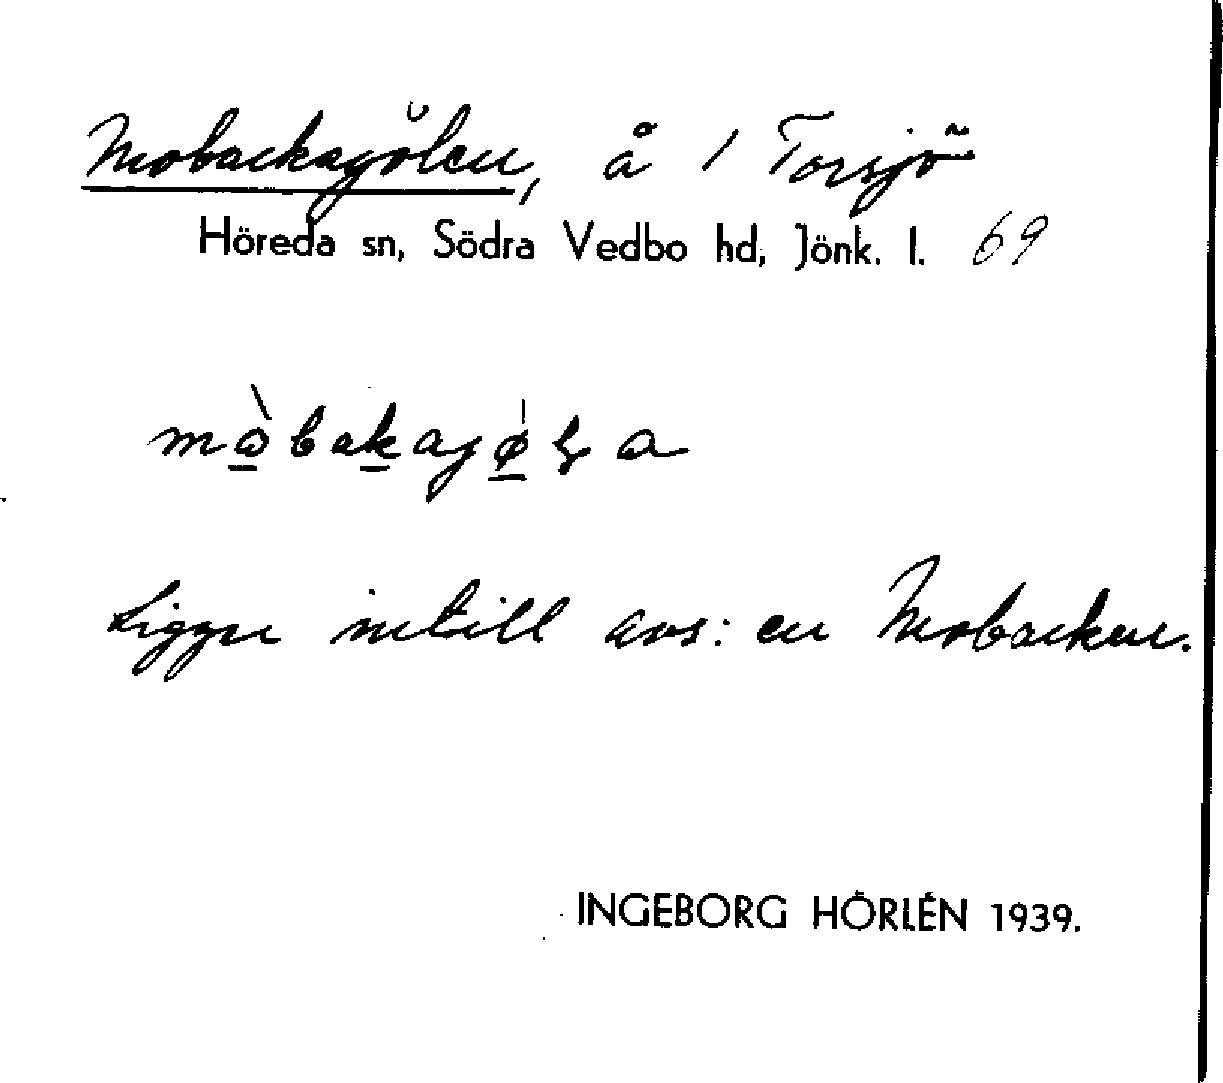 Mobackagölen, å 1 Torsjö
Höreda sn, Södra Vedbo hd, Jönk. l. 69
Ligger intill avs: en Mobacken.
INGEBORG HÖRLÉN 1939.